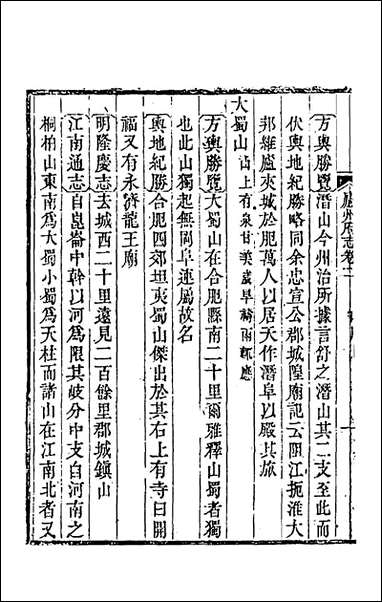 方輿勝覽潛山今州治所據言舒之潛山其二支至此而
伏輿地紀勝略同余忠宣公郡城隍廟記云阻江扼淮大
邦維廬夾城於肥萬人以居天作潛阜以殿其旅
大蜀山山上有泉甘美歲旱禱雨輒應
方輿勝覽大蜀山在合肥縣南二十里爾雅釋山蜀者獨
也此山獨起無岡阜連屬故名
輿地紀勝合肥四郊坦夷蜀山傑出於其右上有寺曰開
福又有永濟龍王廟
明隆慶志去城西二十里遠見二百餘里郡城鎮山
江南通志自崑崙中幹以河為限其岐分中支自河南之
桐柏山東南為大蜀小蜀為天柱而諸山在江南北者又
廬州府志卷二